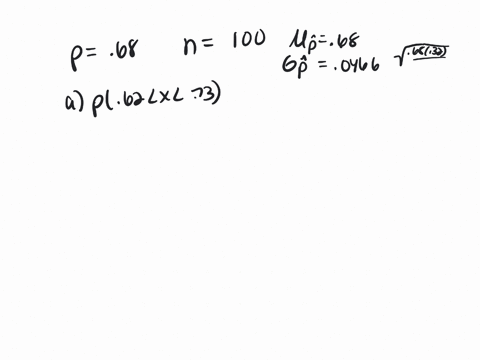 p = .68 n = 100 μp̂ = .68
σp̂ = .0466 √.68(.32)
a) p(.62 < x < .73)